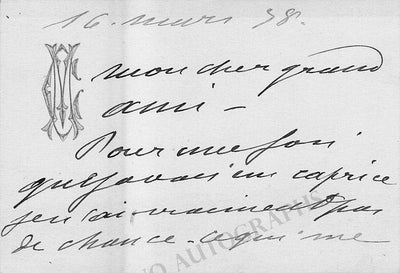 16. mars 98.
mon cher grand
ami -
Pour une fois
que j'avais un caprice
je n'ai vraiment pas
de chance - ce qui me